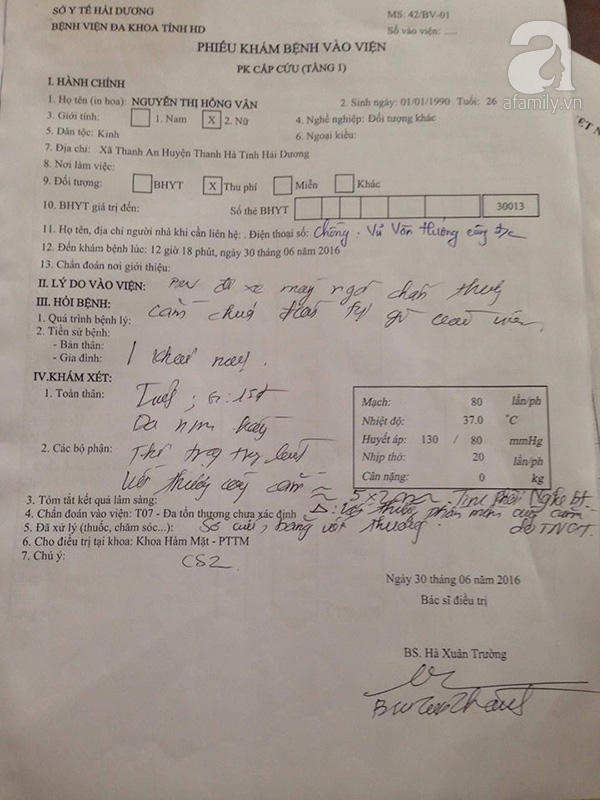 SỞ Y TẾ HẢI DƯƠNG
BỆNH VIỆN ĐA KHOA TỈNH HD
MS: 42/BV-01
Số vào viện: .....
PHIẾU KHÁM BỆNH VÀO VIỆN
PK CẤP CỨU (TẦNG 1)
a
afamily.vn
I. HÀNH CHÍNH
1. Họ tên (in hoa): NGUYỄN THỊ HỒNG VÂN 2. Sinh ngày: 01/01/1990 Tuổi: 26
3. Giới tính: 1. Nam X 2. Nữ 4. Nghề nghiệp: Đối tượng khác
5. Dân tộc: Kinh 6. Ngoại kiều:
7. Địa chỉ: Xã Thanh An Huyện Thanh Hà Tỉnh Hải Dương
8. Nơi làm việc:
9. Đối tượng: BHYT X Thu phí Miễn Khác
10. BHYT giá trị đến: Số thẻ BHYT 30013
11. Họ tên, địa chỉ người nhà khi cần liên hệ: . Điện thoại số: Chồng: Vũ Văn Hưởng cùng đ/c
12. Đến khám bệnh lúc: 12 giờ 18 phút, ngày 30 tháng 06 năm 2016
13. Chẩn đoán nơi giới thiệu:
II. LÝ DO VÀO VIỆN: đi xe máy ngã chấn thương
III. HỎI BỆNH:
1. Quá trình bệnh lý: cằm chưa
2. Tiền sử bệnh:
- Bản thân:
- Gia đình:
IV.KHÁM XÉT:
1. Toàn thân: Tỉnh; G: 15đ
Da niêm
2. Các bộ phận:
Vết thương vùng cằm
Mạch: 80 lần/ph
Nhiệt độ: 37.0 °C
Huyết áp: 130 / 80 mmHg
Nhịp thở: 20 lần/ph
Cân nặng: 0 kg
3. Tóm tắt kết quả lâm sàng:
4. Chẩn đoán vào viện: T07 - Đa tổn thương chưa xác định Δ: Vết thương phần mềm vùng cằm
5. Đã xử lý (thuốc, chăm sóc...): Sơ cứu, băng vết thương. do TNGT.
6. Cho điều trị tại khoa: Khoa Hàm Mặt - PTTM
7. Chú ý: CS2
Ngày 30 tháng 06 năm 2016
Bác sĩ điều trị
BS. Hà Xuân Trường